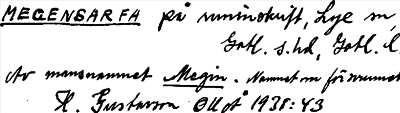 MEGENSARFA på runinskrift, Lye sn,
Gotl. s. hd, Gotl. l.
Av mansnamnet Megin. Namnet m
H. Gustavson OUoÅ 1938:43